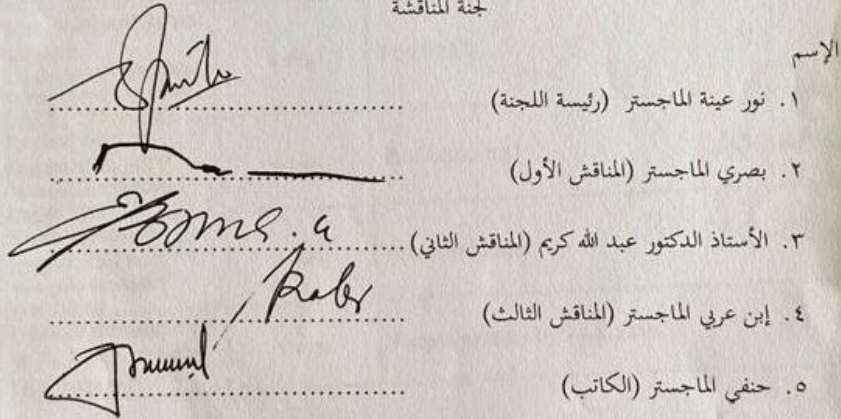 لجنة المناقشة
الإسم
١. نور عينة الماجستر (رئيسة اللجنة) ........................................
٢. بصري الماجستر (المناقش الأول) ........................................
٣. الأستاذ الدكتور عبد الله كريم (المناقش الثاني) ........................................
٤. إبن عربي الماجستر (المناقش الثالث) ........................................
٥. حنفي الماجستر (الكاتب) ........................................